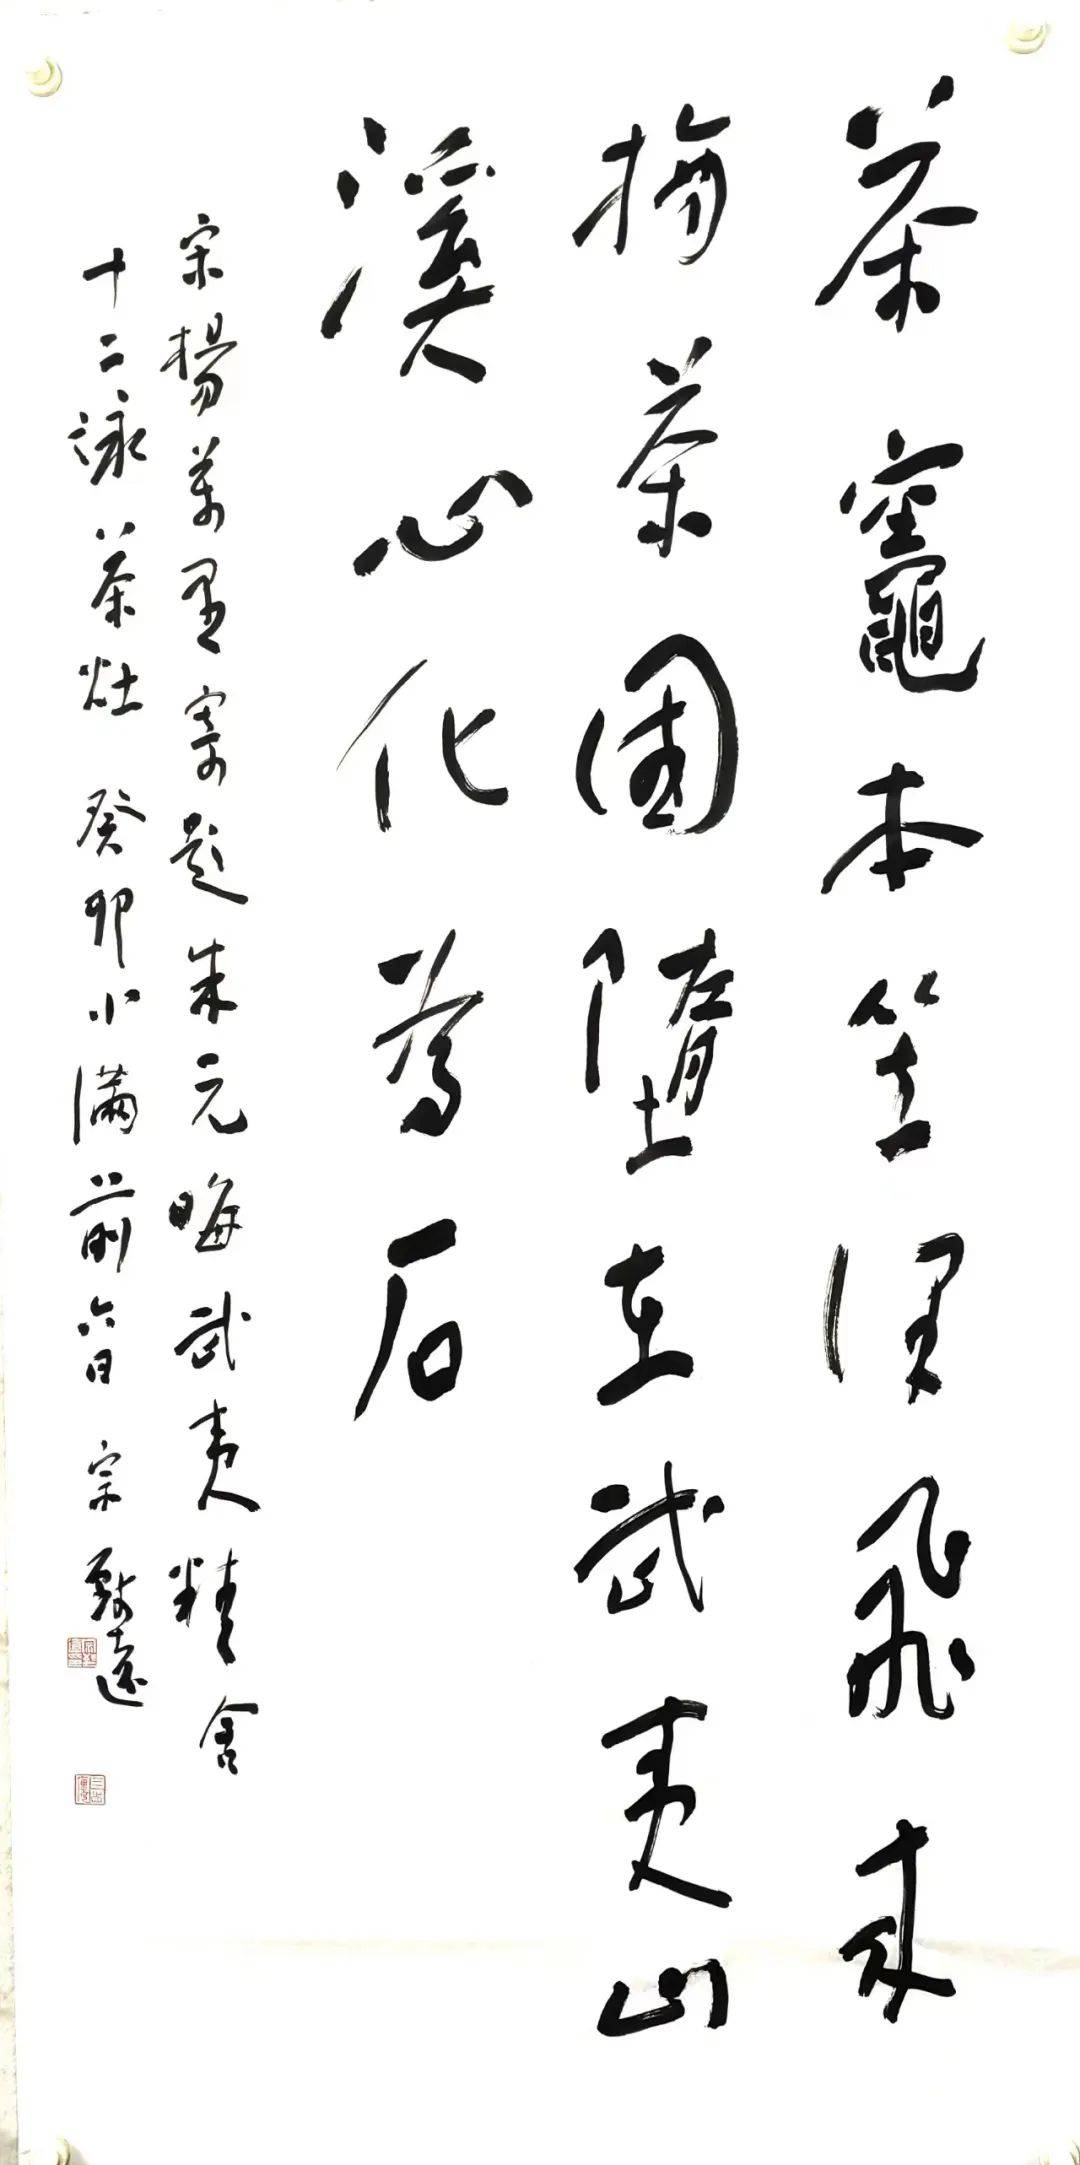 茶竈本笠澤飛來
摘茶國墮在武夷山
溪心化為石
宋楊萬里寄題朱元晦武夷精舍
十二詠茶灶 癸卯小滿前六日 宗